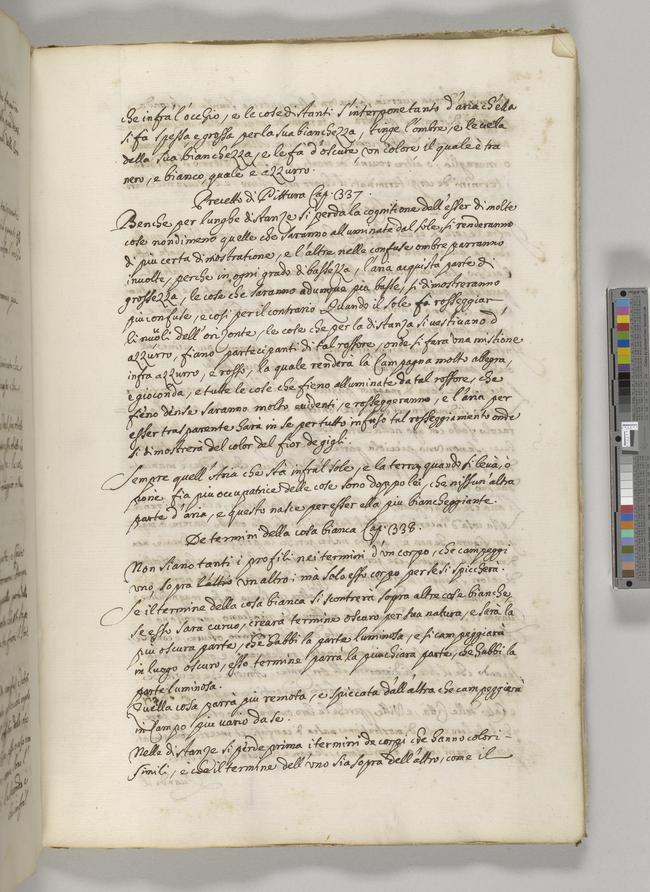 che infrà l'occhio, e le cose distanti s'interpone tanto d'aria ch'ella
si fà spessa e grossa per la sua bianchezza, tinge l'ombre, e le vela
della sua bianchezza, e le fà d'oscure con colore il quale è tra
nero, e bianco, quale è azzurro.
Precetto di Pittura Cap. 337.
Benche per lunghe distanze si perda la cognitione dell'esser di molte
cose nondimeno quelle che saranno alluminate dal sole, si renderanno
di più certa dimostratione, e l'altre nelle confuse ombre parranno
involte, perche in ogni grado di bassezza, l'aria acquista parte di
grossezza, le cose che saranno adunque più basse, si dimostreranno
più confuse, e così per il contrario Quando il sole fà rosseggiar
li nuoli dell'orizonte, le cose che per la distanza si vestivano d'
azzurro, fiano partecipanti di tal rossore, onde si farà una mistione
infra azzurro, e rosso, la quale renderà la Campagna molto allegra,
e gioconda, e tutte le cose che fieno alluminate da tal rossore, che
fieno dense saranno molto evidenti, e rosseggeranno, e l'aria per
esser trasparente harà in se per tutto infuso tal rosseggiamento onde
si dimostrerà del color del fior de gigli.
Sempre quell'Aria che stà infrà'l sole, e la terra, quando si leva, ò
pone fia più occupatrice delle cose sono doppo lei, che nissun'altra
parte d'aria, e questo nasce per esser ella più biancheggiante.
De termini della cosa bianca Cap. 338.
Non siano fatti i profili nei termini d'un corpo, che campeggi
uno sopra l'altro un altro; mà solo esso corpo per se si spiccherà.
Se il termine della cosa bianca si scontrerà sopra altre cose bianche,
se esso sarà curvo, crearà termine oscuro per sua natura, e sarà la
più oscura parte, che habbi la parte luminosa, e si campeggiarà
in luogo oscuro, esso termine parrà la più chiara parte, che habbi la
parte luminosa.
Quella cosa parrà più remota, e spiccata dall'altra che campeggierà
in Campo più vario da se.
Nelle distanze si perde prima i termini de corpi che hanno colori
simili, e che il termine dell'uno sia sopra dell'altro, come il